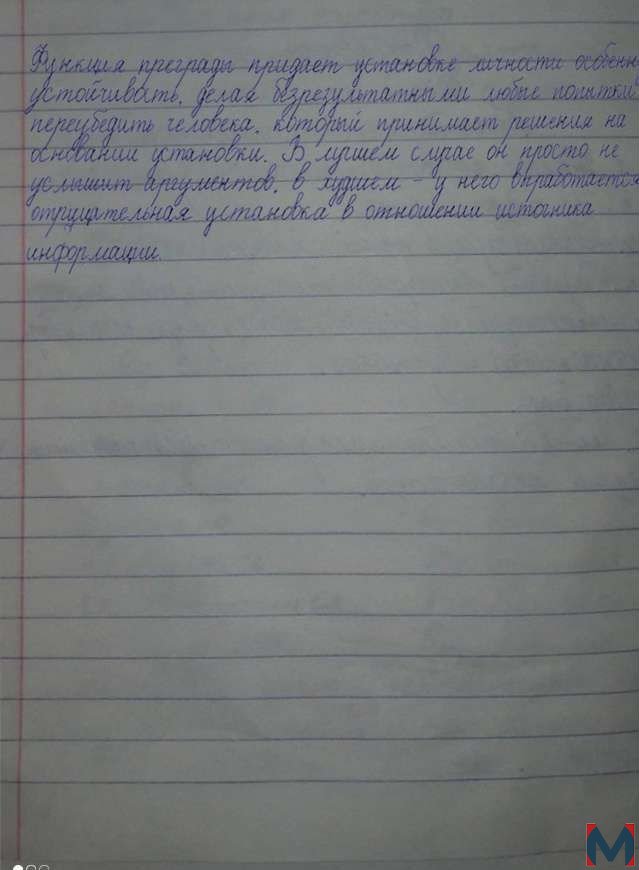 Функция преграды придает установке личности особенн
устойчивать, делая безрезультатными любые попытки
переубедить человека, который принимает решения на
основании установки. В лучшем случае он просто не
услышит аргументов, в худшем – у него выработается
отрицательная установка в отношении источника
информации.
M